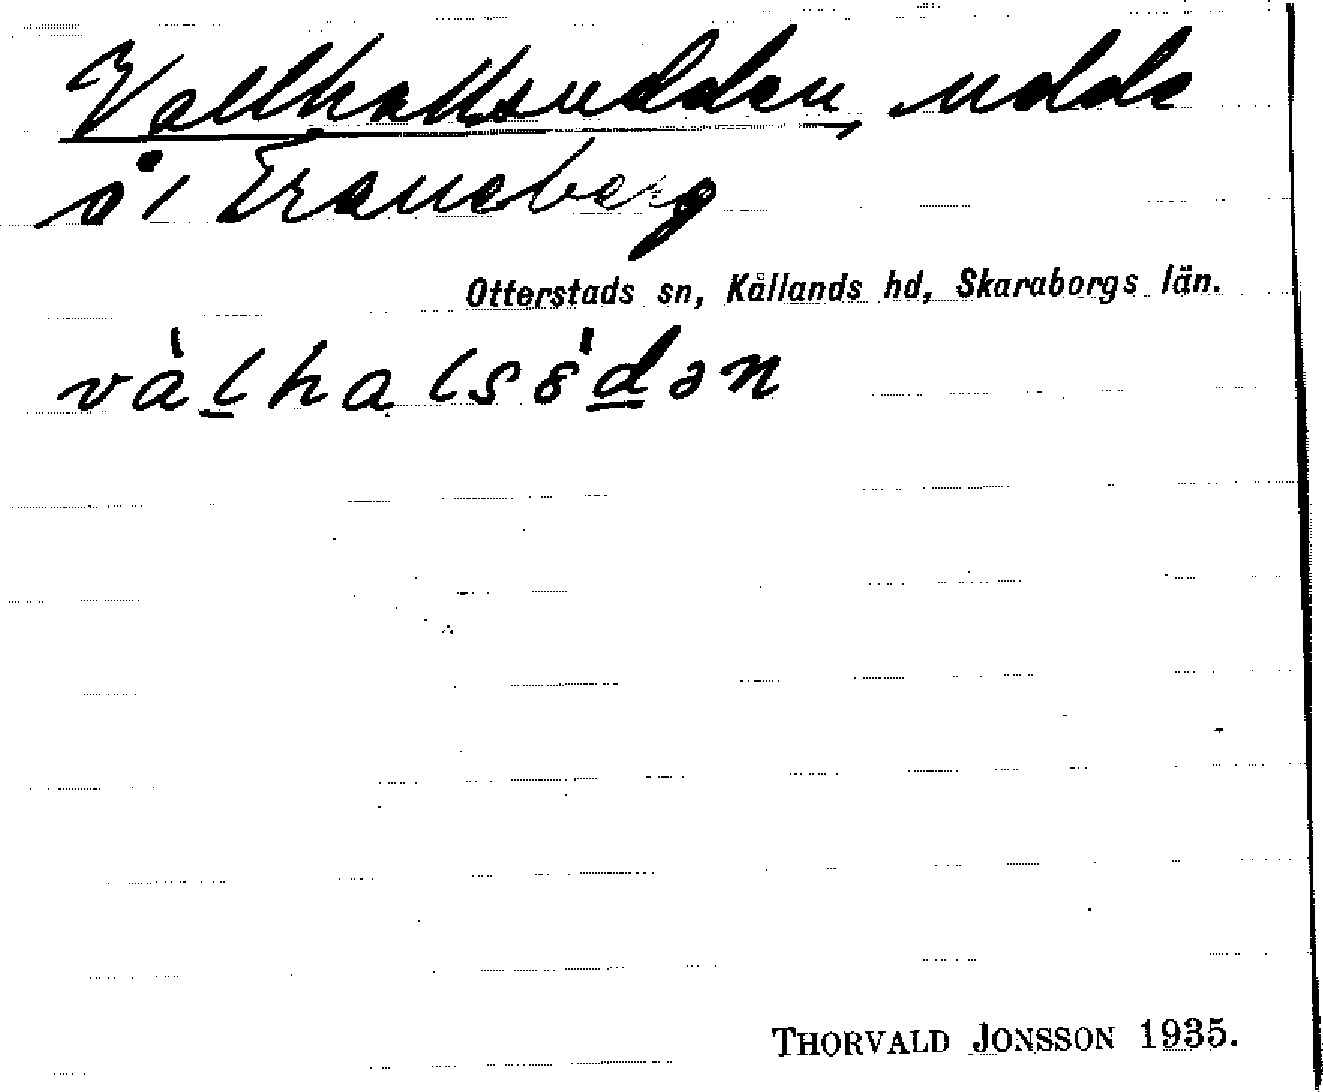 Vallhallsudden, udde
å i Traneberg
Otterstads sn, Kållands hd, Skaraborgs län.
và̀lhalsö̀dən
THORVALD JONSSON 1935.